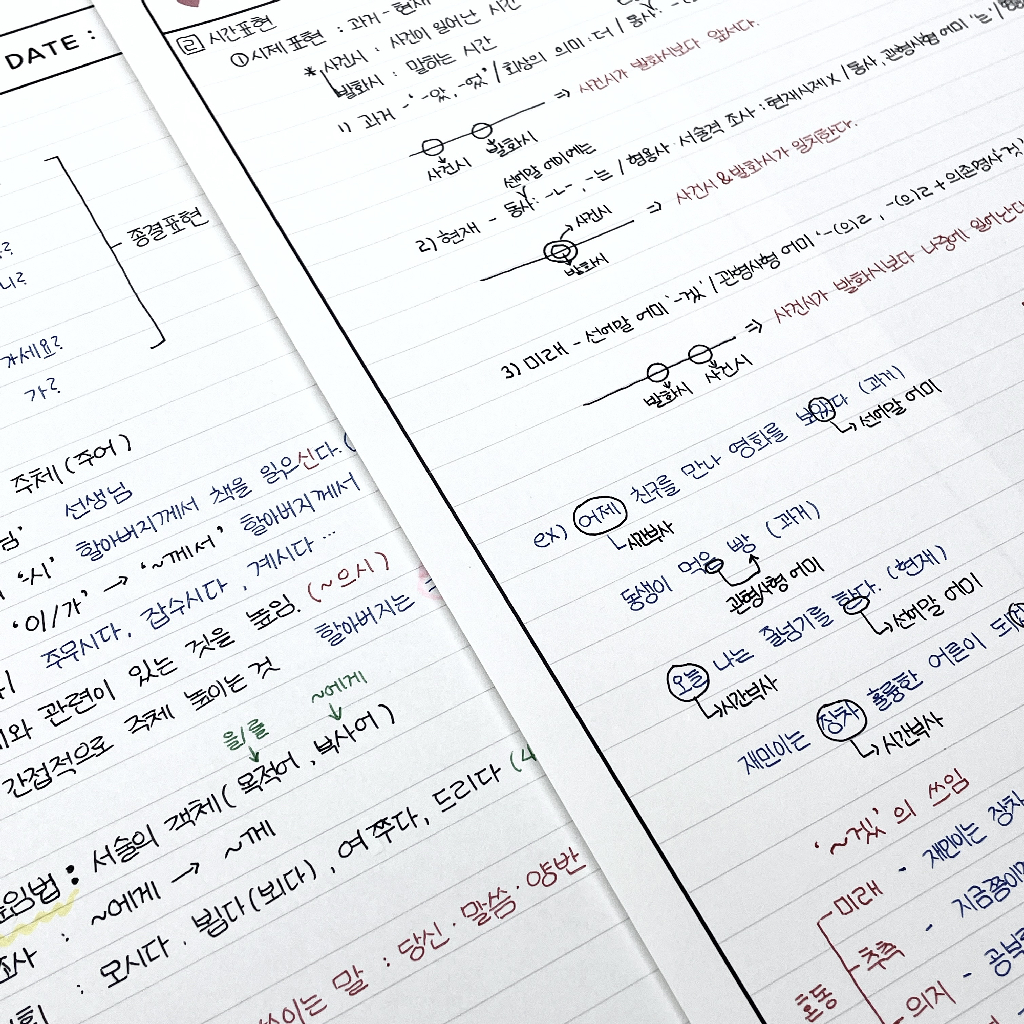 DATE :
종결표현
니?
가세요?
가?
주체(주어)
선생님
'시' 할아버지께서 책을 읽으신다.
'이/가' → '~께서' 할아버지께서
주무시다, 잡수시다, 계시다 …
관련이 있는 것을 높임. (~으시)
간접적으로 주체 높이는 것 할아버지는
을/를 ~에게
: 서술의 객체( 목적어 , 부사어 )
조사 : ~에게 → ~께
: 오시다. 뵙다(뵈다), 여쭈다, 드리다
쓰이는 말 : 당신·말씀·양반
2 시간표현
① 시제 표현 : 과거 - 현재
* 사건시 : 사건이 일어난 시간
발화시 : 말하는 시간
1) 과거 - '-았, -었' / 회상의 의미 : 더 / 동사 :
⇒ 사건시가 발화시보다 앞서다.
사건시 발화시
선어말 어미에는
2) 현재 - 동사: -ㄴ-, -는 / 형용사·서술격 조사 : 현재시제 X / 동사, 관형사형 어미 '는'
사건시 ⇒ 사건시&발화시가 일치한다.
발화시
3) 미래 - 선어말 어미 '-겠' / 관형사형 어미 '-(으)ㄹ, -(으)ㄹ + 의존명사 것'
⇒ 사건시가 발화시보다 나중에 일어난다
발화시 사건시
ex) 어제 친구를 만나 영화를 보았다 (과거)
시간부사 선어말 어미
동생이 먹은 빵 (과거)
관형사형 어미
오늘 나는 줄넘기를 한다. (현재)
시간부사 선어말 어미
재민이는 장차 훌륭한 어른이
시간부사
'~겠'의 쓰임
미래 - 재민이는 장차
지금쯤이면
혼동 추측 -
의지 - 공부